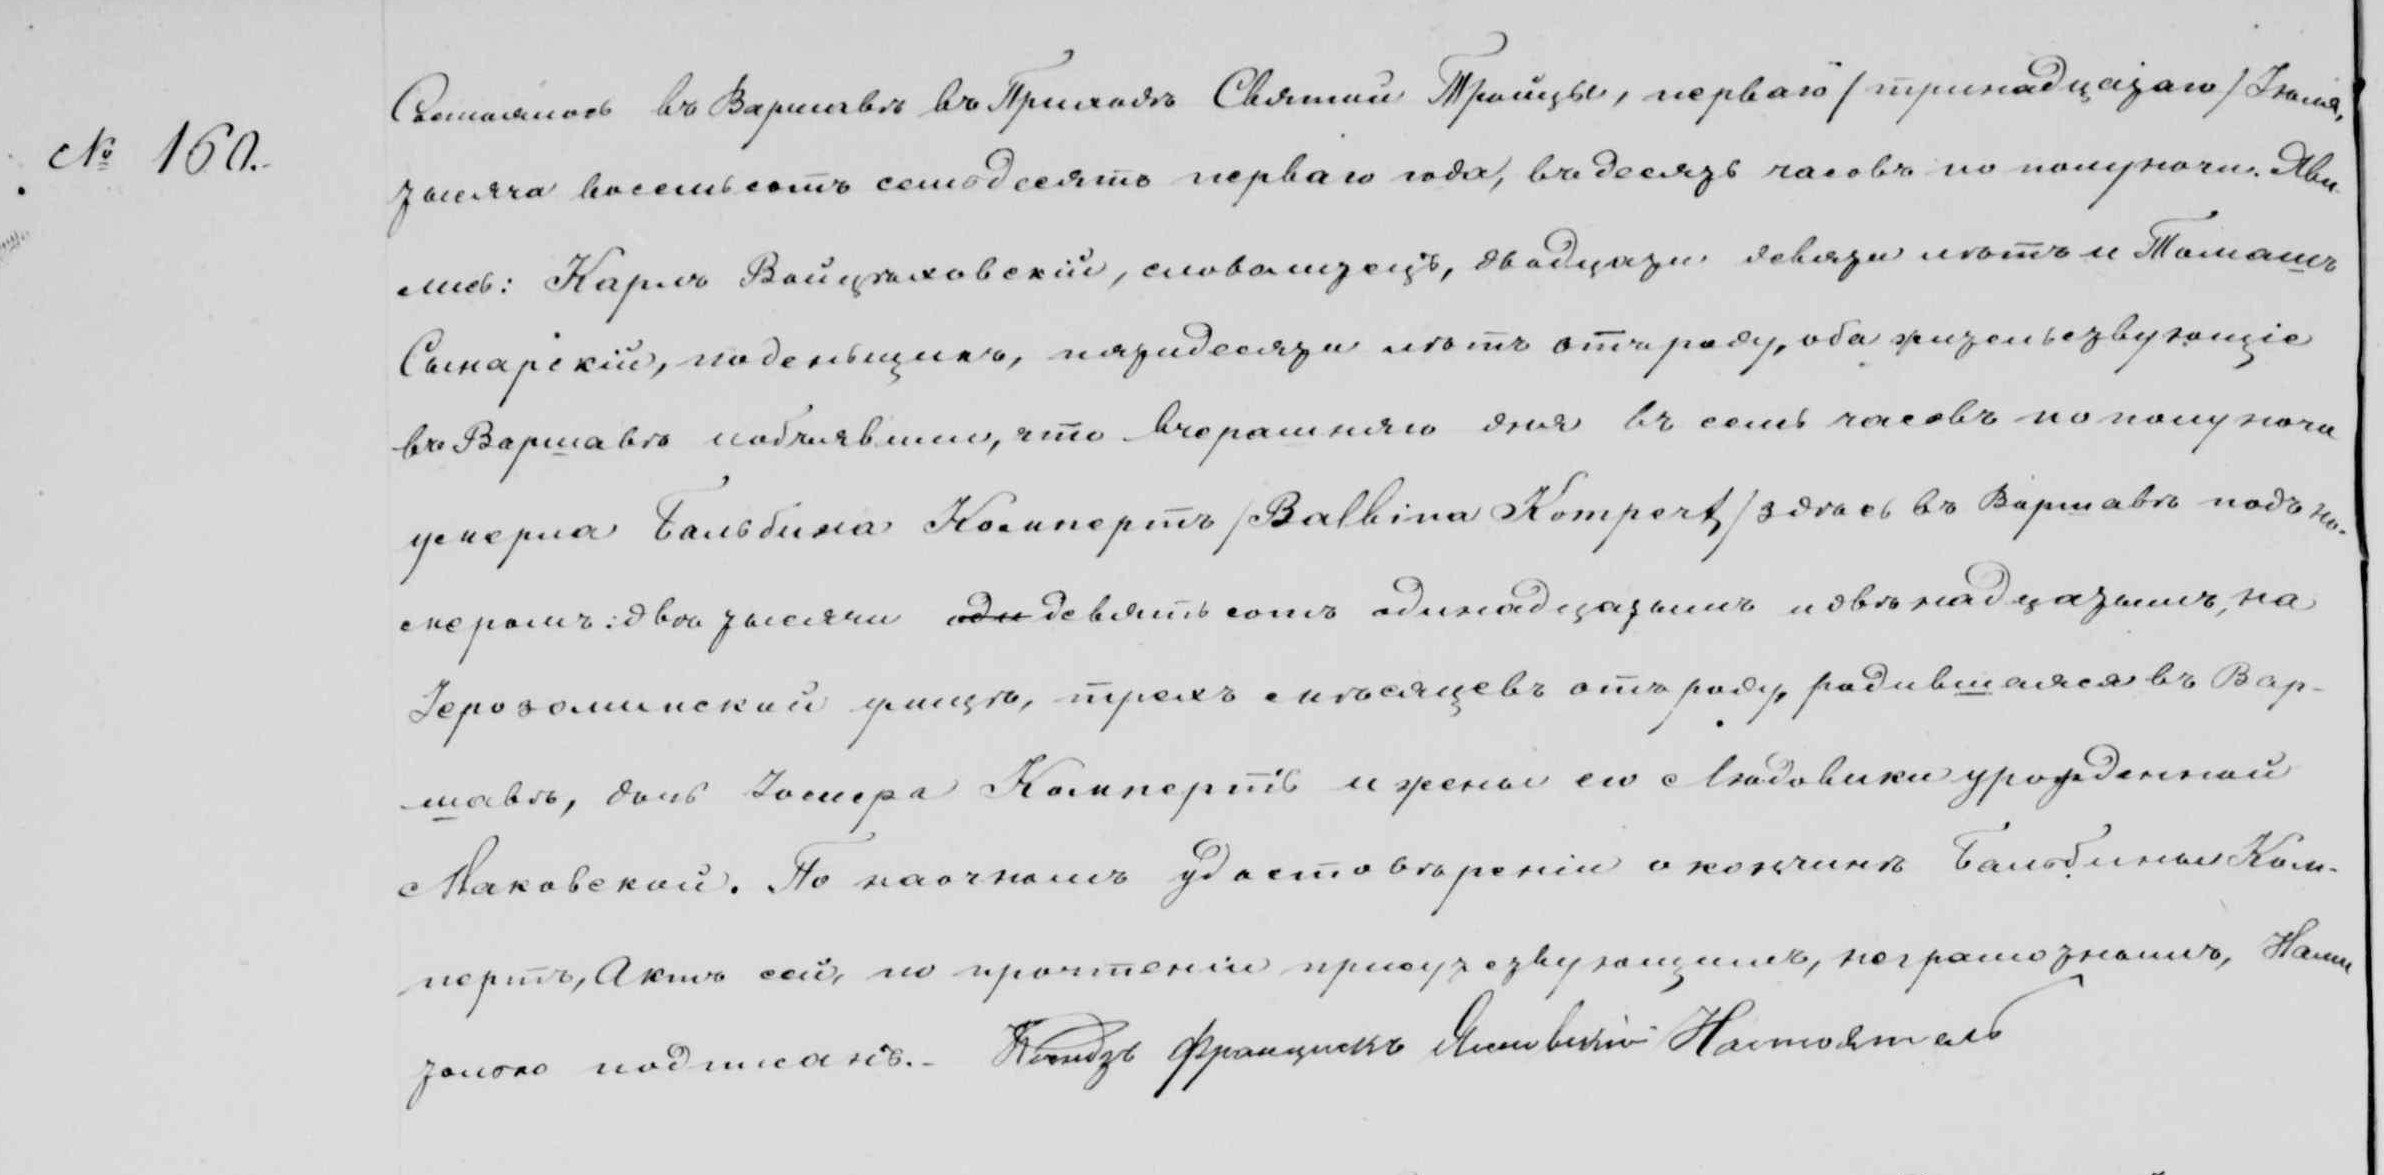 № 160.
Состоялось въ Варшавѣ въ Приходѣ Святой Тройцы, перваго / тринадцатаго / Іюня,
тысяча восемьсотъ семьдесятъ перваго года, въ десять часовъ по полуночи. Яви-
лись: Карлъ Войцѣховскій, словолитецъ, двадцати девяти лѣтъ и Томашъ
Сынарскій, поденьщикъ, пятидесяти лѣтъ отъ роду, оба жительствующіе
въ Варшавѣ и объявили, что вчерашняго дня въ семь часовъ по полуночи
умерла Бальбина Коммпертъ / Balbina Kompert / здѣсь въ Варшавѣ подъ но-
меромъ: двѣ тысячи оди девятьсотъ одинадцатымъ и двѣнадцатымъ, на
Іерозолимской улицѣ, трехъ мѣсяцевъ отъ роду, родившаяся въ Вар-
шавѣ, дочь Іосифа Компертъ и жены его Людовики урожденной
Маковской. По наочномъ удостовѣреніи о кончинѣ Бальбины Ком-
пертъ, Актъ сей, по прочтеніи присутствующимъ, неграмотнымъ, Нами
только подписанъ. Ксендзъ Францискъ Настоятель